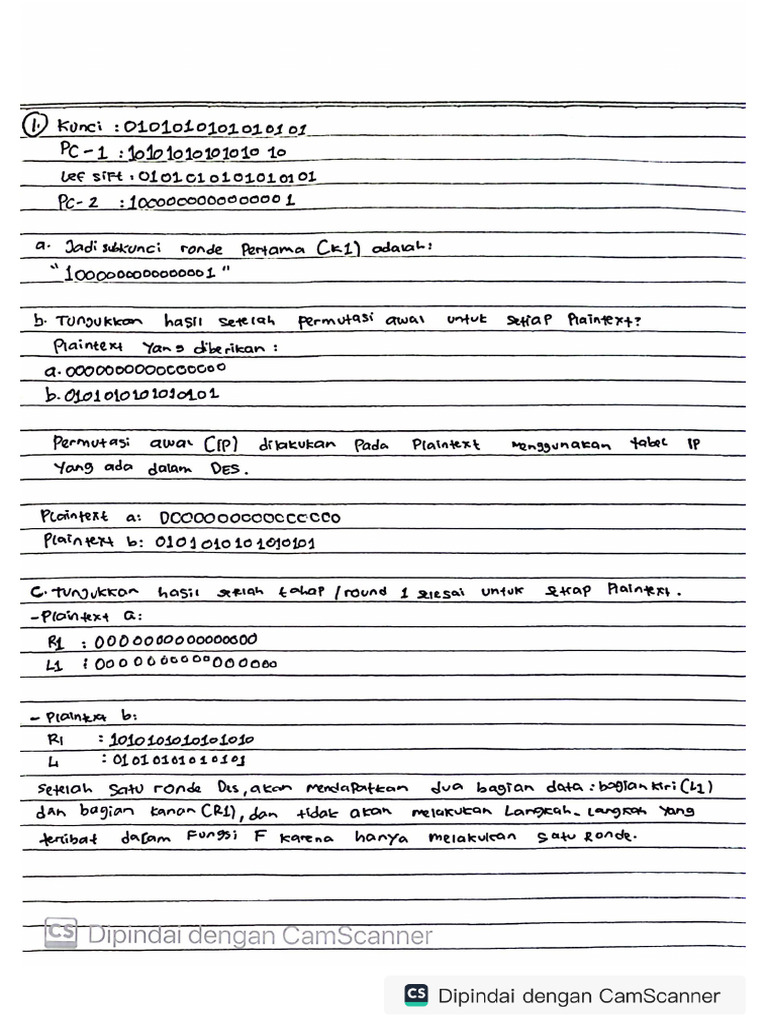 1. Kunci : 0101010101010101
PC-1 : 1010101010101010
Lef sift : 0101010101010101
PC-2 : 1000000000000001
a. Jadi subkunci ronde Pertama (K1) adalah:
"100000000000001"
b. Tunjukkan hasil setelah permutasi awal untuk setiap Plaintext?
Plaintext Yang diberikan :
a. 0000000000000000
b. 0101010101010101
Permutasi awal (IP) dilakukan Pada Plaintext menggunakan tabel IP
Yang ada dalam DES.
Plaintext a: 0000000000000000
Plaintext b: 0101010101010101
C. Tunjukkan hasil setelah tahap/round 1 selesai untuk setiap Plaintext.
-Plaintext a:
R1 : 0000000000000000
L1 : 0000000000000000
- Plaintext b:
R1 : 1010101010101010
L : 01010101010101
setelah satu ronde Des, akan mendapatkan dua bagian data : bagian kiri (L1)
dan bagian kanan (R1), dan tidak akan melakukan Langkah-Langkah Yang
terlibat dalam Fungsi F karena hanya melakukan satu Ronde.
CS Dipindai dengan CamScanner
CS Dipindai dengan CamScanner